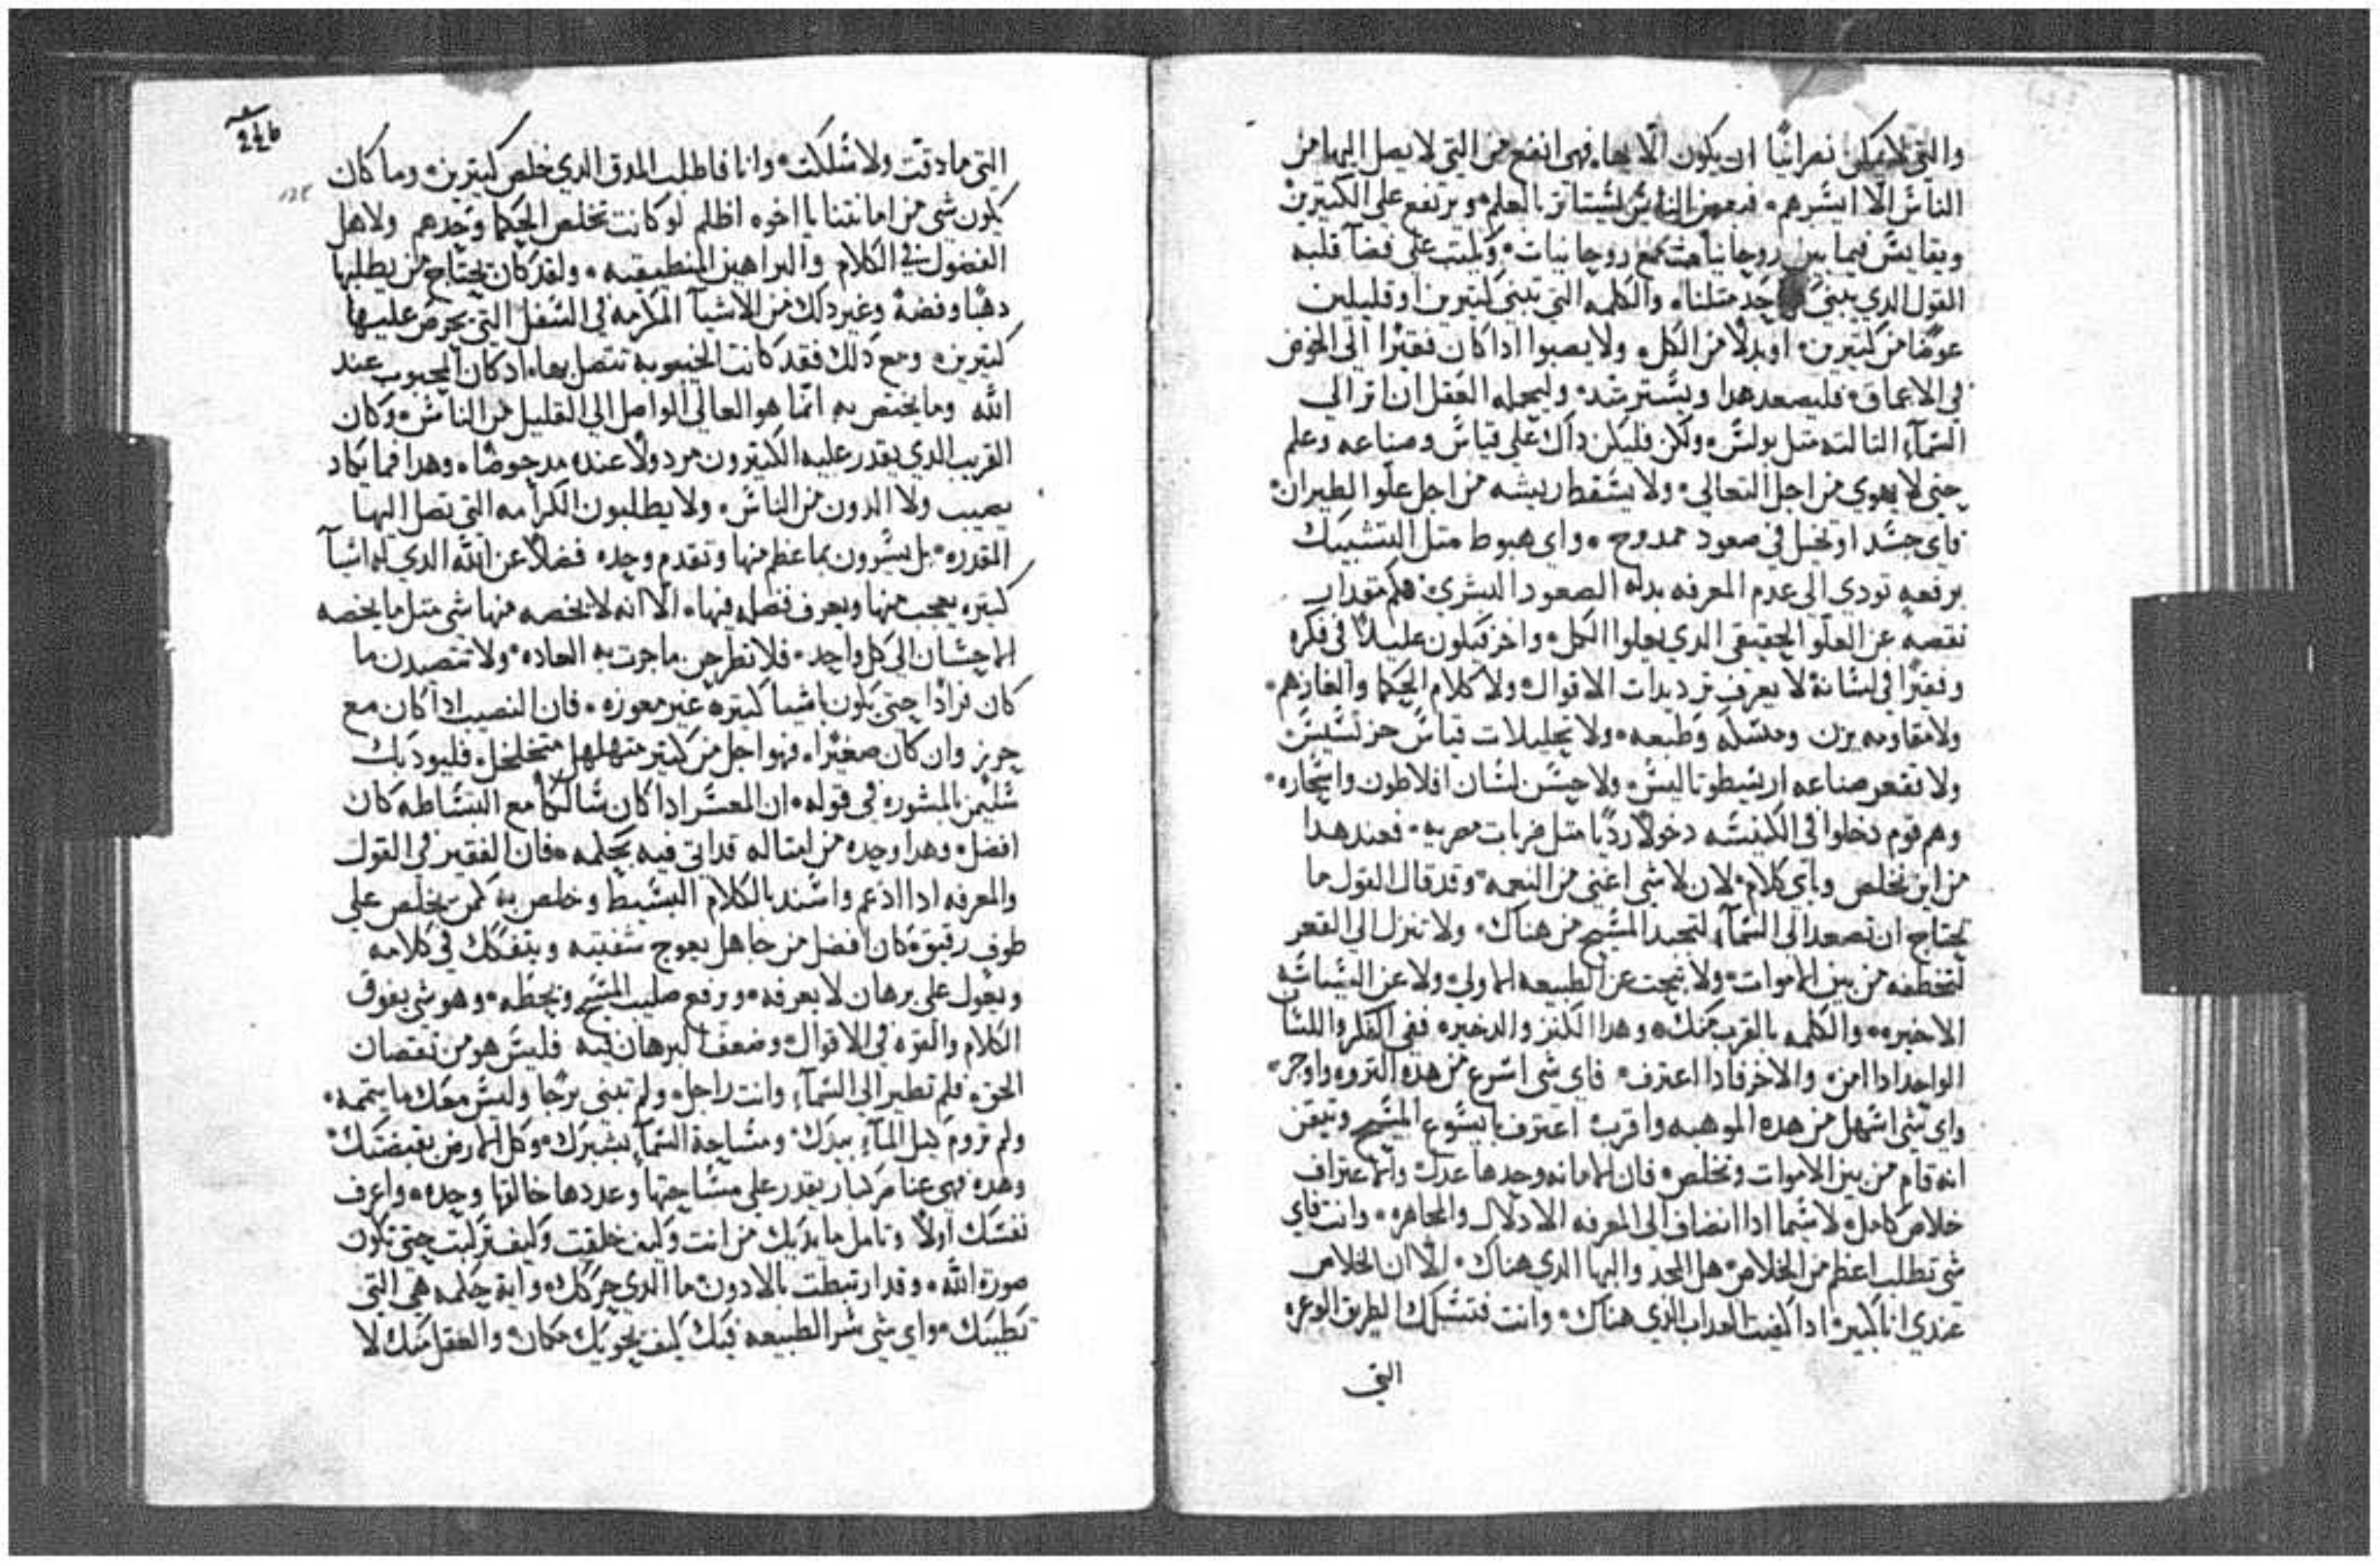 والتي لا يمكن نصرانيًا ان يكون الّا بها، فهي انفع من التي لا يصل اليها من
الناس الّا ايسرهم. فبعض الناس يستاثر بالعلم ويرتفع علي الكتيرين
ويقايس فيما بين روحانيات مع روحانيات. ويكتب علي فضآ قلبه
القول الدي يبني كل احد متلنا، والكلمه التي تبني كتيرين او قليلين
عوضًا من كتيرين. او بدلًا من الكل، ولا يصبوا ادا كان فقيرًا الي الخوض
في الاعماق. فليصعد هدا ويسترشد. وليحمله العقل ان اتر الي
السمآء التالته متل بولس، ولكن فليكن داك علي قياس وصناعه وعلم
حتي لا يهوي من اجل التعالي. ولا يسقط ريشه من اجل علّو الطيران.
فاي حسد او بخل في صعود ممدوح. واي هبوط متل التشبيك
برفعه تودي الي عدم المعرفه بدله الصعود البشري. فكم مقدار
نقصه عن العلّو الحقيقي الدي يعلوا الكل، واخر فيكون عليلًا في فكره
وفقيرًا في لسانه لا يعرف ترديدات الاقوال ولا كلام الحكما والغازهم.
ولا مقاومه بزن ومسكه وطبعه. ولا تحليلات قياس خرسيس
ولا تقعر صناعه ارسطوتاليس. ولا حسن لسان افلاطون واسحاره.
وهم قوم دخلوا في الكنيسه دخولًا رديًا متل ضربات مصريه. فعند هدا
من اين نخلص وباي كلام. لان لا شي اغني من النعمه. وقد قال القول ما
يحتاج ان تصعد الي السمآء لتحيد المسيح من هناك. ولا تنزل الي القعر
لتخطفه من بين الاموات. ولا تبحت عن الطبيعه الاولي. ولا عن السياسه
الاخيره. والكلمه بالقرب منك. وهدا الكنز والدخيره ففي الفكر واللسان
الواحد ادا امن. والاخر فادا اعترف. فاي شي اسرع من هده التروه واوجز.
واي شي اسهل من هده الموهبه واقرب اعترف بايسوع المسيح وتيقن
انه قام من بين الاموات وتخلص. فان الامانه وحدها عدل والاعتراف
خلاص كامل. لا سيما ادا انضاف الي المعرفه الادلال والمجاهره. وانت فاي
شي تطلب اعظم من الخلاص. هل المجد والبها الدي هناك. الّا ان الخلاص
عندي انا كبير. ادا كفيت العداب الدي هناك. وانت فتسلك الطريق الوعره
التي
246
التي ما دقت ولا سُلكت. وانا فاطلب المدق الدي خلص كتيرين. وما كان
يكون شي من امانتنا يا اخوه اظلم لو كانت تخلص الحكما وحدهم ولاهل
الفضول في الكلام والبراهين المنطيقيه. ولقد كان يحتاج من يطلبها
دهبًا وفضهً وغير دلك من الاشيآ المكرمه في السفل التي يحرص عليها
كتيرين. ومع دلك فقد كانت الخيبوبه تتصل بها. اد كان المحبوب عند
الله وما يختص به انّما هو العالي الواصل الي القليل من الناس. وكان
القريب الدي يقدر عليه الكتيرون مردولًا عنده مدحوضًا. وهدا فما يكاد
يصيب ولا الدون من الناس. ولا يطلبون الكرامه التي تصل اليها
القدره. بل يسرون بما عظم منها وتقدم وحده فضلًا عن الله الدي له اشيآ
كتيره يعجب منها ويعرف فضله فيها. الّا انه لا يخصه منها شي متل ما يخصه
الاحسان الي كل واحد. فلا تطرحن ما جرت به العاده. ولا تتصيدن ما
كان نرادًا حتي يكون باشيا كتيره غير معوزه. فان النصيب ادا كان مع
حرز وان كان صغيرًا. فهو اجل من كتير متهلهل متخلخل. فليودبك
سليمن بالمشوره في قوله. ان المعسر ادا كان سالكًا مع البساطه كان
افضل. وهدا وحده من امتاله قد اتي فيه بحكمه. فان الفقير في القول
والمعرفه ادا ادعم واسند بالكلام البسيط وخلص به كمن يخلص علي
طوف رقيق. كان افضل من جاهل يعوج شفتيه ويتفكك في كلامه
ويعول علي برهان لا يعرفه. ورفع صليب المسيح ويحطه. وهو شي يفوق
الكلام والقوه في الاقوال. وضعف البرهان فيه فليس هو من نقصان
الحق. فلم تطير الي السمآء وانت راجل. ولم تبني برجًا وليس معك ما يتممه.
ولم تروم كيل المآء بيدك. ومساحة السمآ بشبرك. وكل الارض بقبضتك.
وهده فهي عناصر كبار يقدر علي مساحتها وعددها خالقها وحده. واعرف
نفسك اولًا وتامل ما بديك من انت وكيف خلقت وكيف تركبت حتي تكون
صورة الله. وقد ارتبطت بالادون. ما الدي حركك. واية حكمه هي التي
تطبيك. واي شي سر الطبيعه فيك كيف يحويك مكان. والعقل منك لا